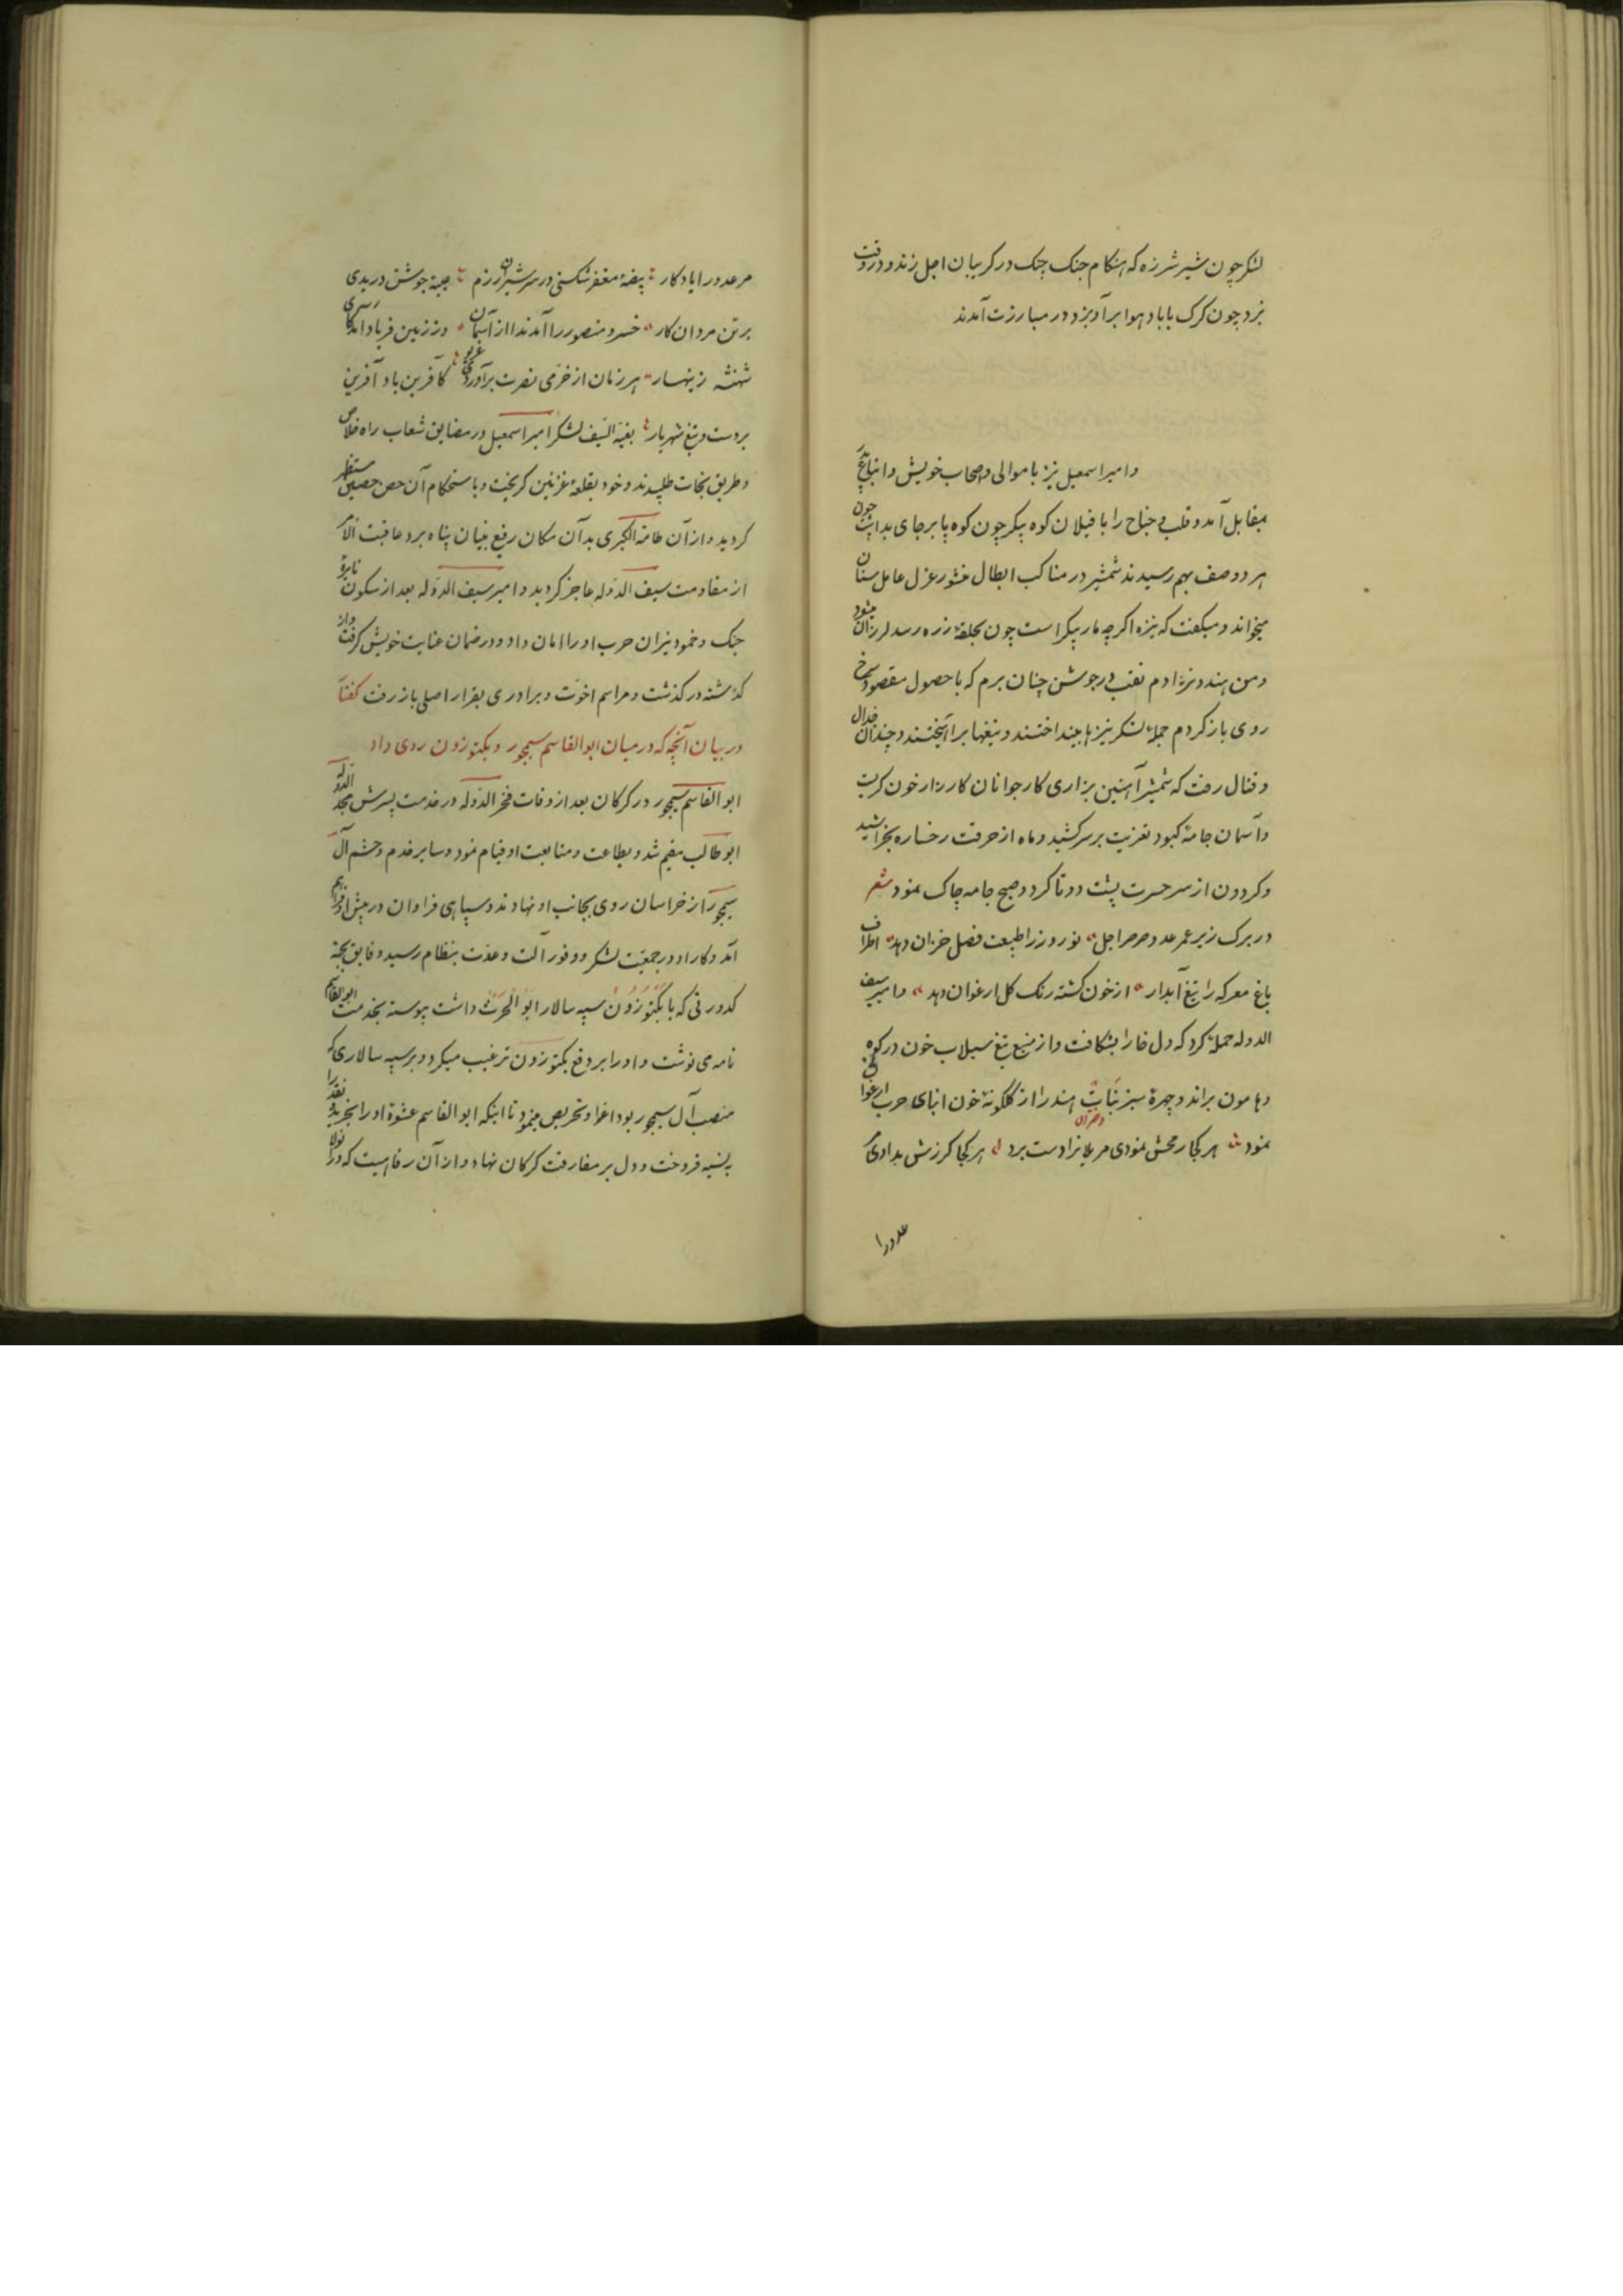 لشکر چون شیر شرزه که هنکام جنک چنک در کریبان اجل زند و در وقت
نبرد چون کرک با باد هوا برآویزد در مبارزت آمدند
و امیر اسمعیل نیز با موالی و صحاب خویش و اتباع
بمقابل آمد و قلب و جناح را با فیلان کوه پیکر چون کوه پا برجای بداشت چون
هر دو صف بهم رسیدند شمشیر در مناکب ابطال منشور عزل عامل سنان
میخواند و میکفت که نیزه اکرچه مار پیکر است چون بحلقهٔ زره رسد لرزان شود
و من هندو نژادم نقب در جوشن چنان برم که با حصول مقصود سرخ
روی باز کردم جملهٔ لشکر نیزها بینداختند و تیغها برآهیختند و چندان جدال
و قتال رفت که شمشیر آهنین بزاری کار جوانان کارزار خون کریست
و آسمان جامهٔ کبود تعزیت برسر کشید و ماه از حرقت رخساره بخراشید
و کردون از سر حسرت پشت دوتا کرد و صبح جامه چاک نمود شعر
در برک ریز عمر عدو صرصر اجل نوروز را طبیعت فصل خزان دهد اطراف
باغ معرکه را تیغ آبدار از خون کشته رنک کل ارغوان دهد و امیر سیف
الدوله حملهٔ کرد که دل خارا بشکافت و از منبع تیغ سیلاب خون در کوه
و هامون براند و چهرهٔ سبز نبات هند را از کلکونهٔ خون ابنای حرب ارغوانی
نمود هر کجا رمحش نمودی مر یلانرا دست برد هر کجا کرزش بدادی مر
عدو را
مر عدو را یادکار بیضهٔ مغفر شکستی در سر شیران رزم جیبهٔ جوشن دریدی
بر تن مردان کار خسرو منصور را آمد ندا از آسمان وز زمین فریاد آمد کای
شهنشه زینهار هر زمان از خرمی نصرت برآوردی غریو کآفرین باد آفرین
بر دست و تیغ شهریار بقیة السیف لشکر امیر اسمعیل در مضایق شعاب راه خلاص
و طریق نجات طلبیدند و خود بقلعهٔ غزنین کریخت و باستحکام آن حصن حصین مستظهر
کردید و از آن طامة الکبری بدآن مکان رفیع بنیان پناه برد عاقبت الامر
از مقاومت سیف الدوله عاجز کردید و امیر سیف الدوله بعد از سکون نایرهٔ
جنک و خمود نیران حرب او را امان داد و در ضمان عنایت خویش کرفت و از
کذشته در کذشت و مراسم اخوت و برادری بقرار اصلی باز رفت کفتار
در بیان آنچه که در میان ابو القاسم سیمجور و بکتوزون روی داد
ابو القاسم سیمجور در کرکان بعد از وفات فخر الدوله در خدمت پسرش مجد الدوله
ابو طالب مقیم شد و بطاعت و متابعت او قیام نمود و سایر خدم و حشم آل
سیمجور از خراسان روی بجانب او نهادند و سپاهی فراوان در پیش او فراهم
آمد و کار او در جمعیت لشکر و وفور آلت و عدت بنظام رسید و فایق بجهة
کدورتی که با بکتوزون سپه سالار ابو الحرث داشت پیوسته بخدمت ابو القاسم
نامه می نوشت و او را بر دفع بکتوزون ترغیب میکرد و بر سپه سالاری که
منصب آل سیمجور بود اغوا و تحریص مینمود تا اینکه ابو القاسم عشوهٔ او را بخرید و نقد را
بنسیه فروخت و دل بر مفارقت کرکان نهاد و از آن رفاهیت که در